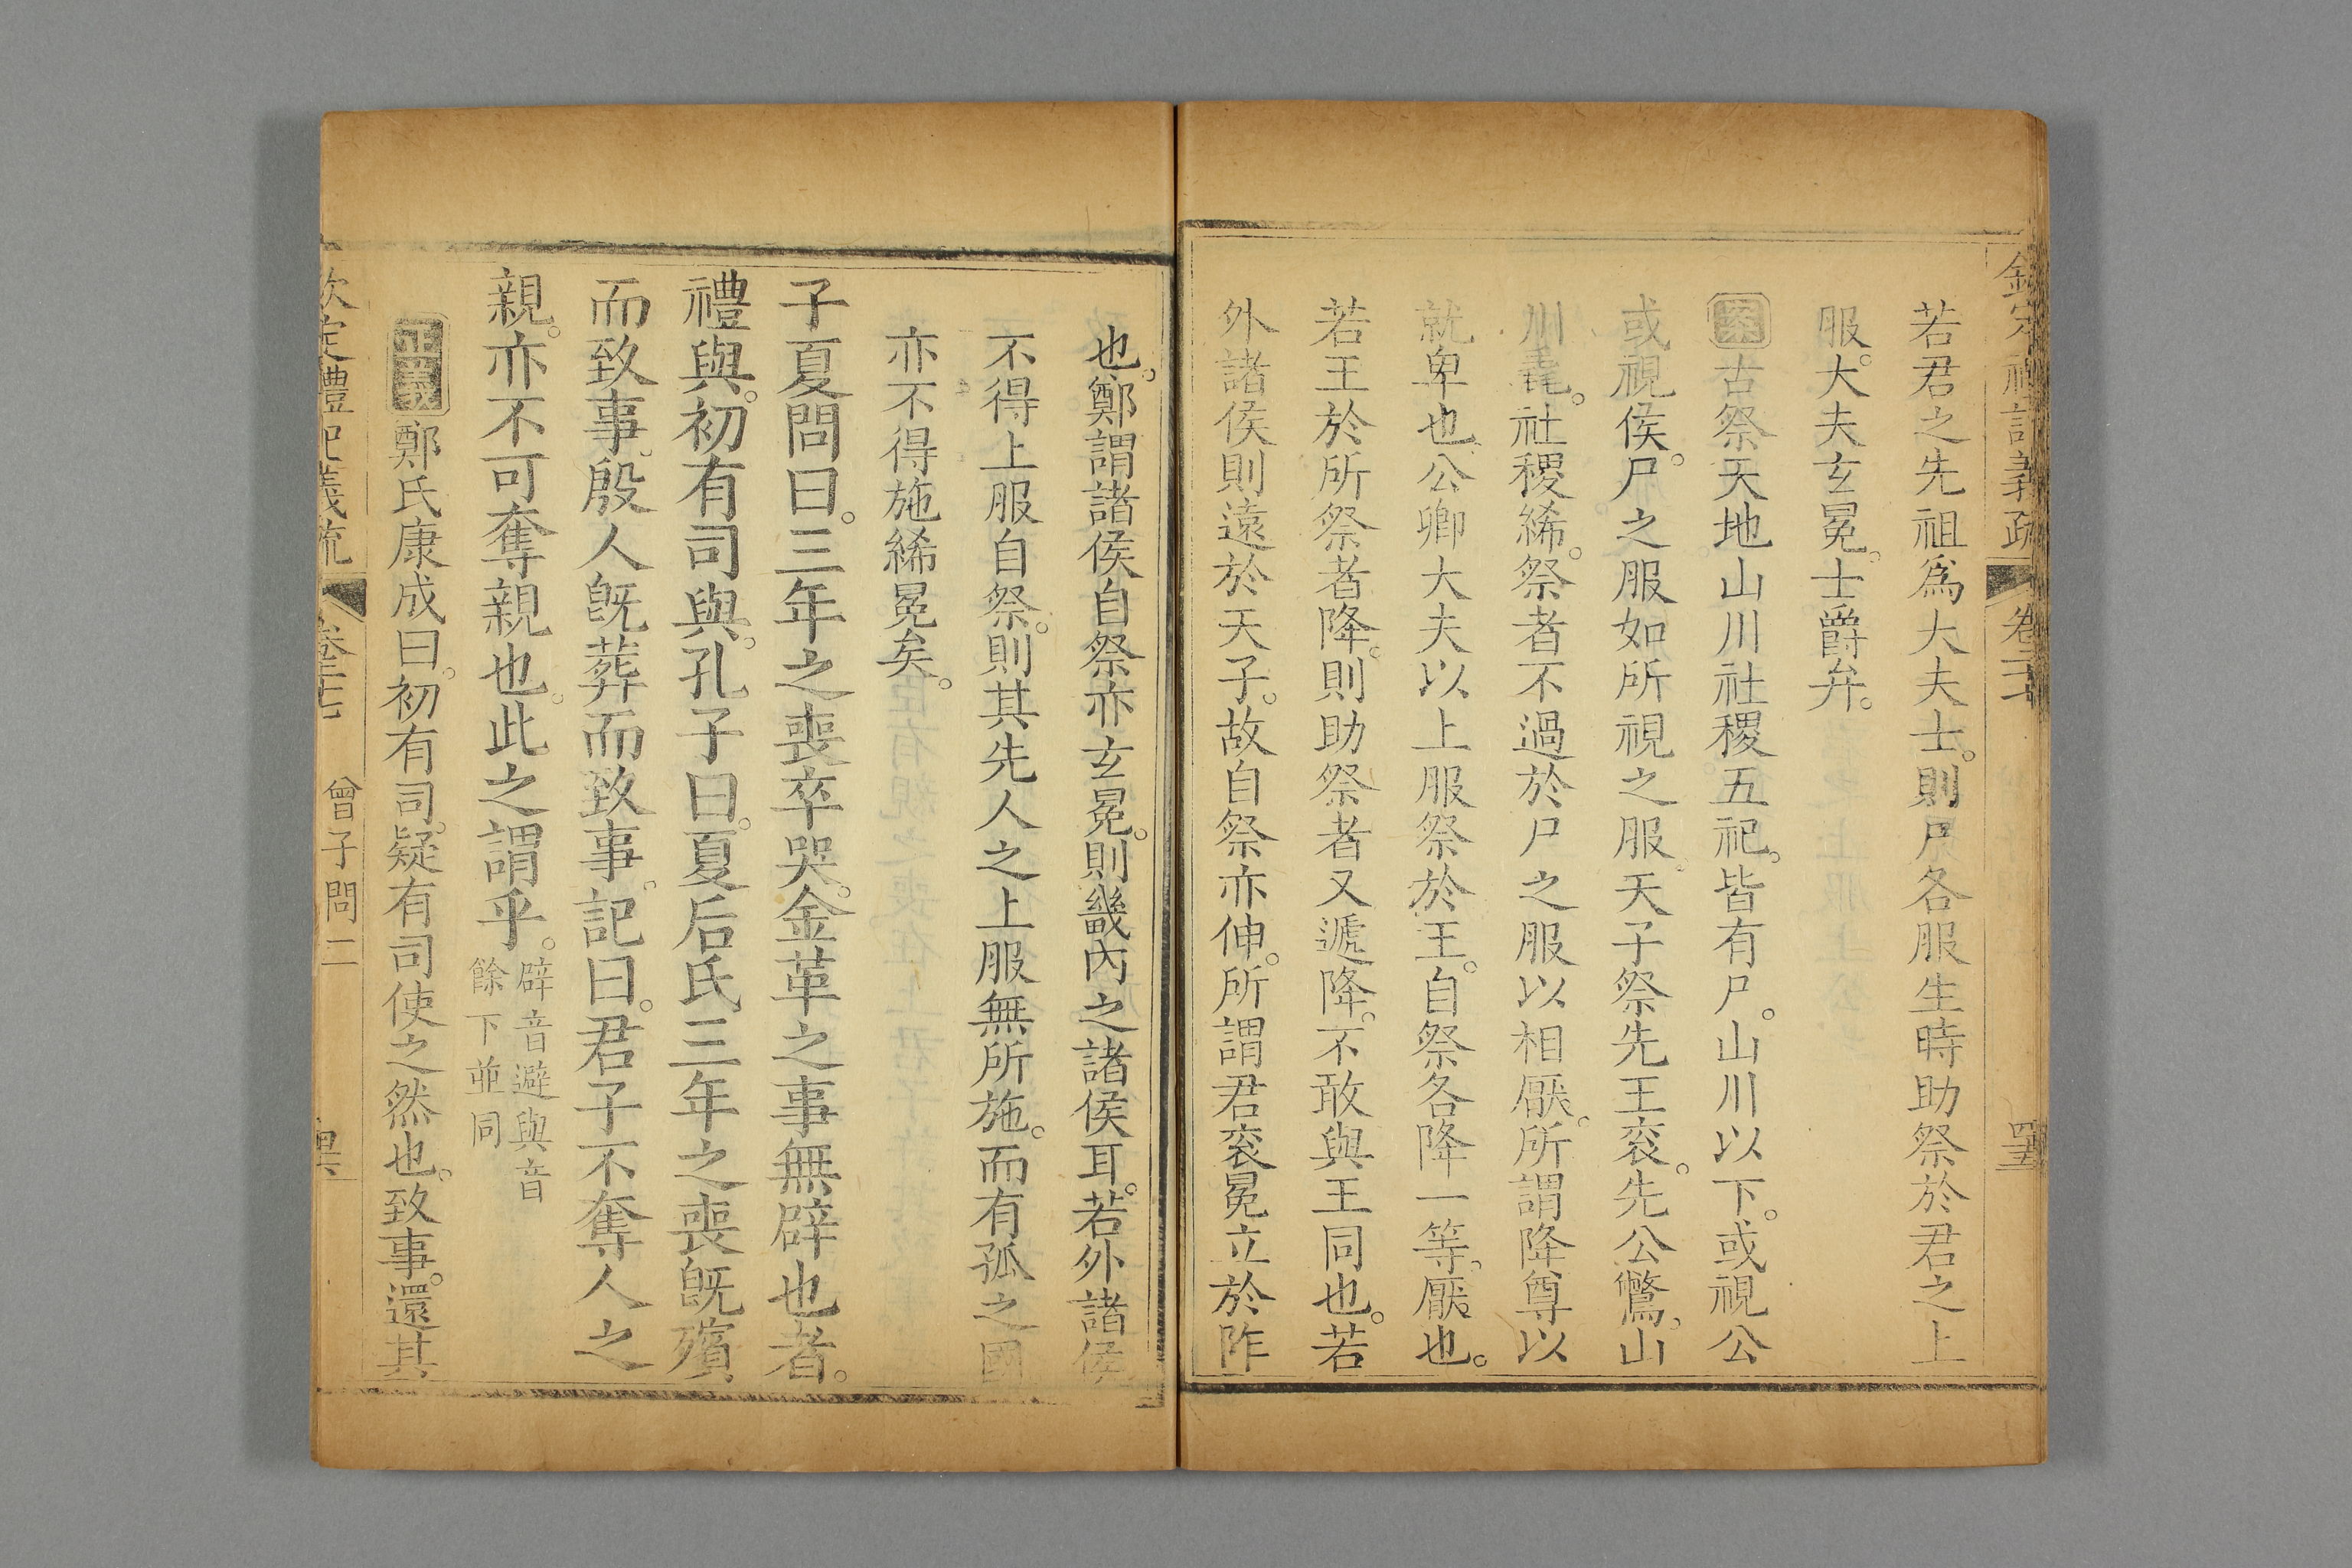 欽定禮記義疏 卷二十七
若君之先祖爲大夫士。則尸各服生時助祭於君之上
服。大夫玄冕。士爵弁。
案 古祭天地山川社稷五祀。皆有尸。山川以下。或視公
或視侯。尸之服如所視之服。天子祭先王衮。先公鷩。山
川毳。社稷絺。祭者不過於尸之服以相厭。所謂降尊以
就卑也。公卿大夫以上服祭於王。自祭各降一等。厭也。
若王於所祭者降。則助祭者又遞降。不敢與王同也。若
外諸侯則遠於天子。故自祭亦伸。所謂君衮冕立於阼
也。鄭謂諸侯自祭亦玄冕。則畿內之諸侯耳。若外諸侯
不得上服自祭。則其先人之上服無所施。而有孤之國
亦不得施絺冕矣。
子夏問曰。三年之喪卒哭。金革之事無辟也者。
禮與。初有司與。孔子曰。夏后氏三年之喪旣殯
而致事。殷人旣葬而致事。記曰。君子不奪人之
親。亦不可奪親也。此之謂乎。
辟音避與音
餘下並同
正義 鄭氏康成曰。初有司。疑有司使之然也。致事。還其
欽定禮記義疏 卷二十七 曾子問二